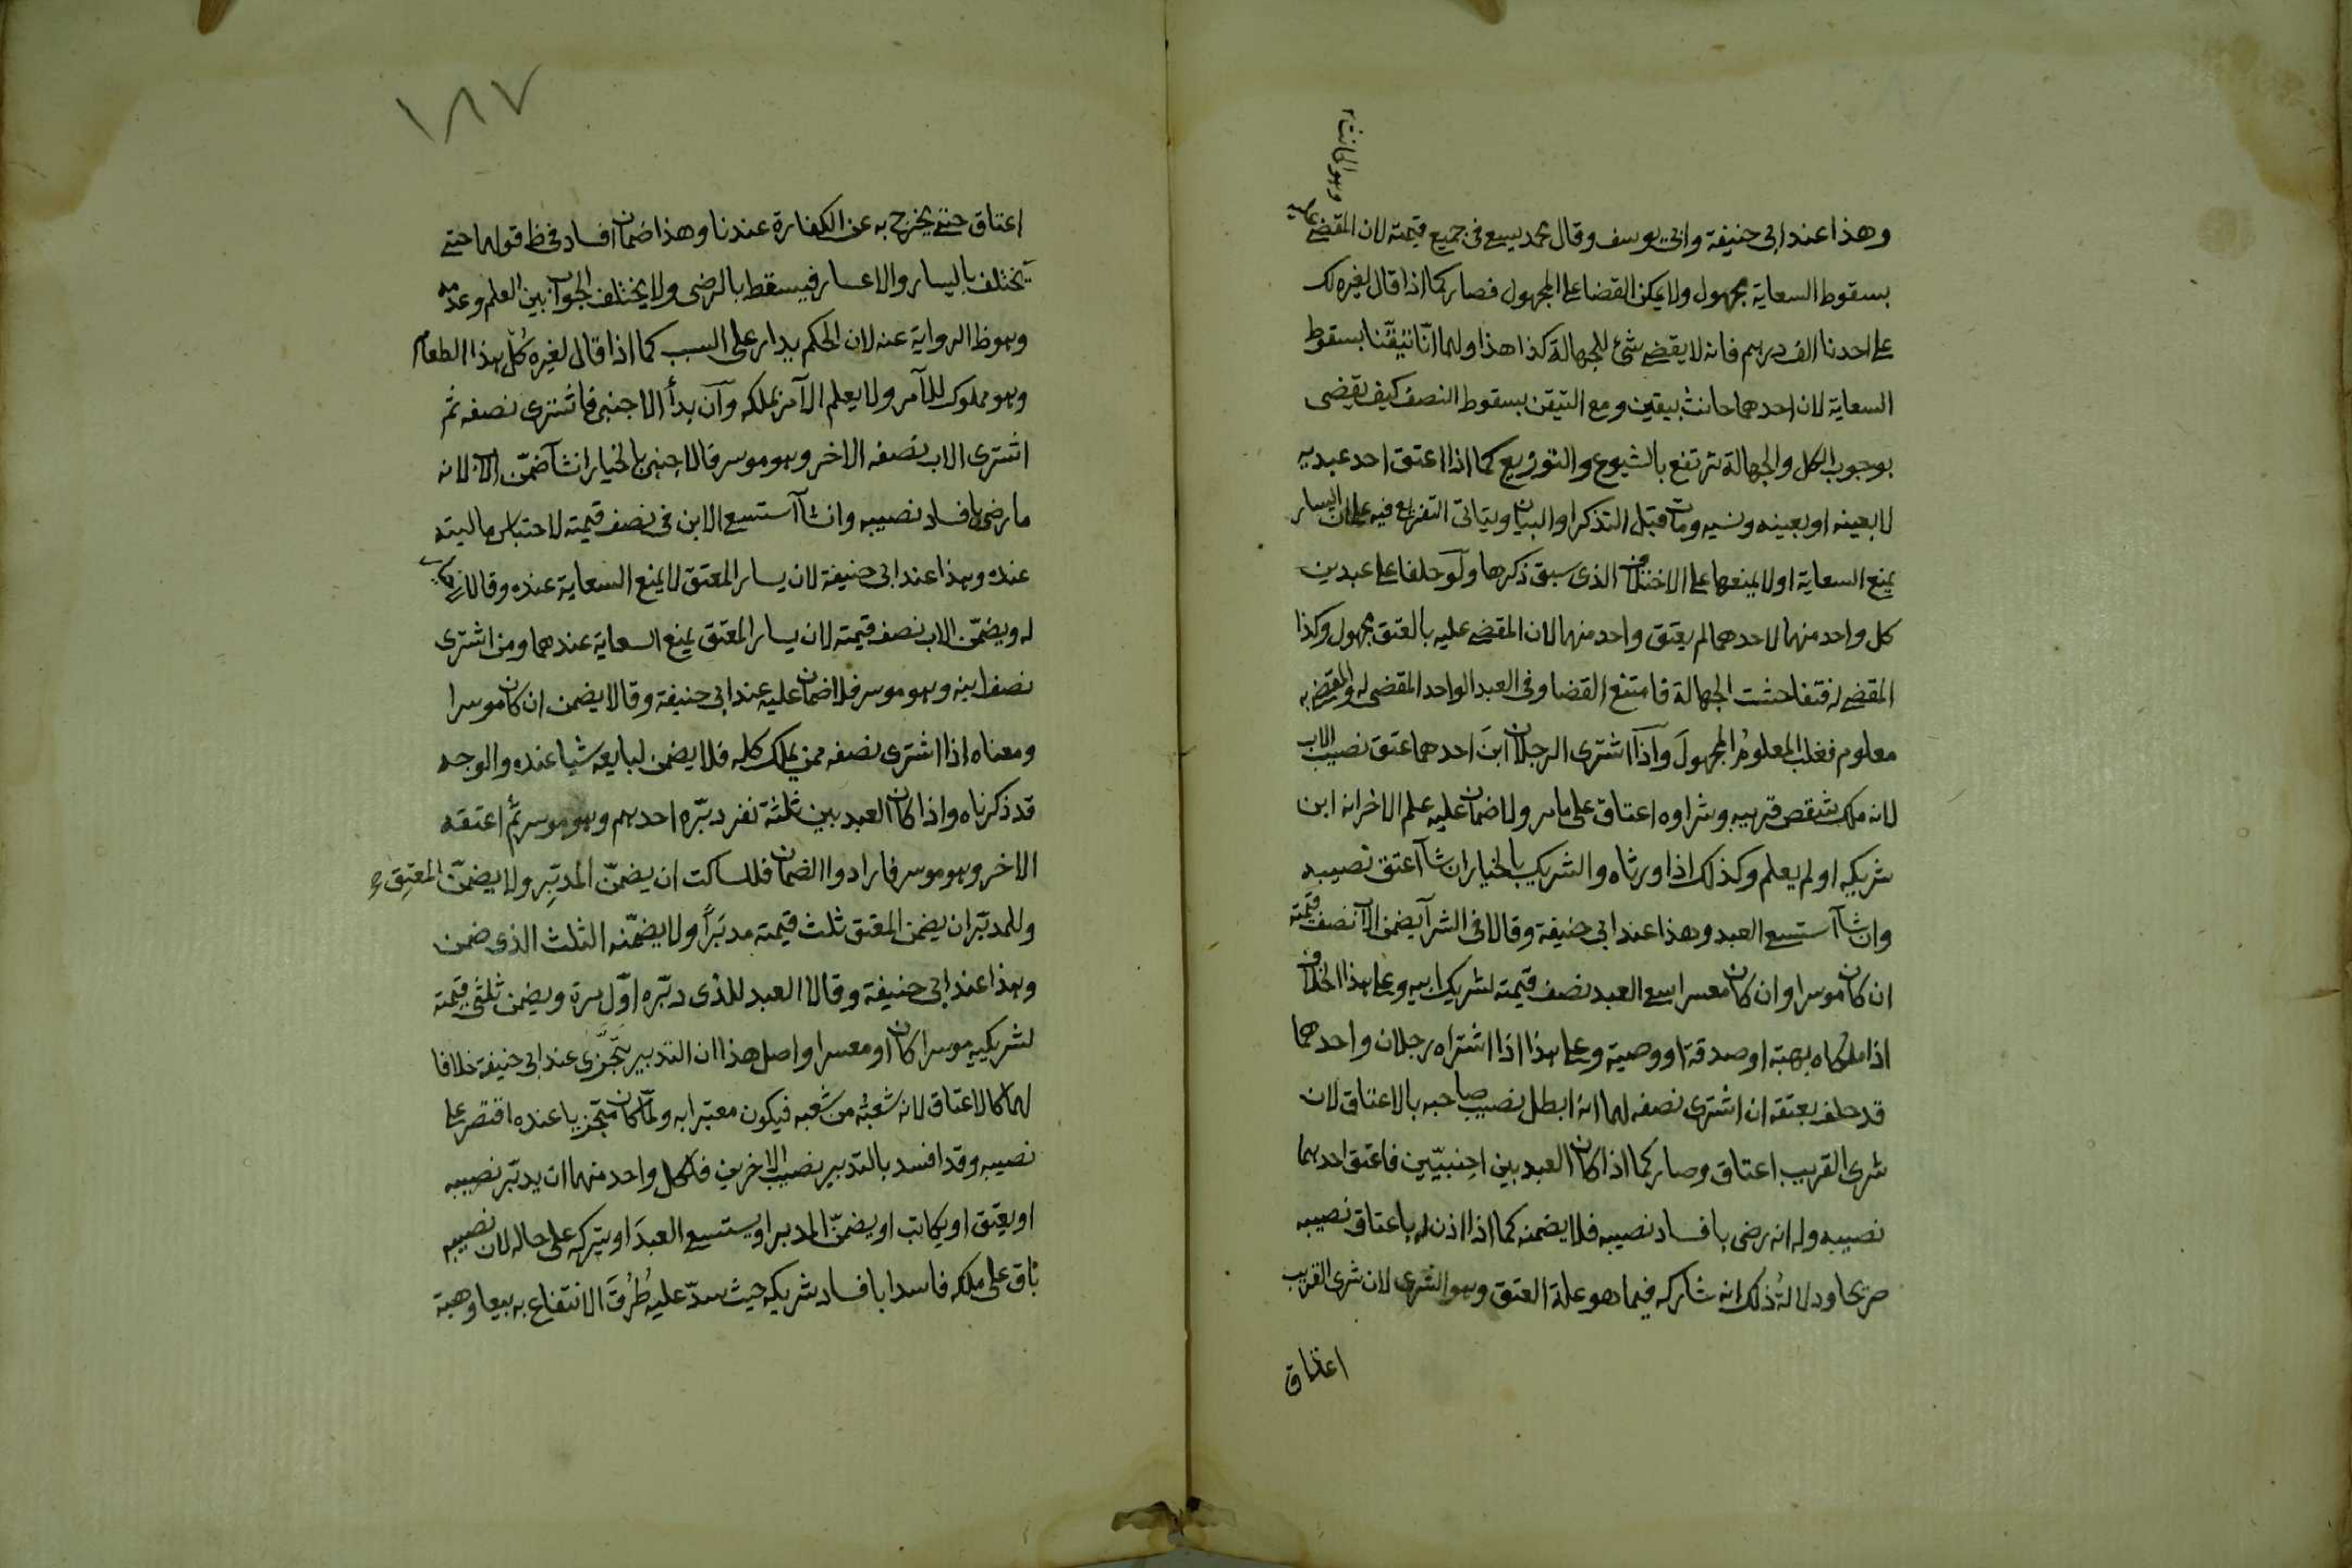 وهو الحانث
وهذا عند ابى حنيفة وابى يوسف وقال محمد يسعى فى جميع قيمته لان المقضے عليه
بسقوط السعاية مجهول ولا يمكن القضا علے المجهول فصار كما اذا قال لغيره لك
علے احدنا الف درهم فانه لا يقضے بشئ للجهالة كذا هذا ولهما انّا تيقّنا بسقوط
السعاية لان احدهما حانث بيقين ومع التيقن بسقوط النصف كيف يقضى
بوجوب الكل والجهالة ترتفع بالشيوع والتوزيع كما اذا اعتق احد عبديه
لا بعينه او بعينه ونسيه ومات قبل التذكر او البيان ويتاتى التفريع فيه علے ان اليسار
يمنع السعاية او لا يمنعها علے الاختلاف الذى سبق ذكرها ولو حلفا علے عبدين
كل واحد منهما لاحدهما لم يعتق واحد منهما لان المقضے عليه بالعتق مجهول وكذا
المقضے له فتفاحشت الجهالة فامتنع القضا وفى العبد الواحد المقضى له والمقضے به
معلوم فغلب المعلومُ المجهولَ واذا اشترى الرجلان ابنَ احدهما عتق نصيب الاب
لانه ملك شقص قريبه وشراوه اعتاق على مامر ولا ضمان عليه علم الاخر انه ابن
شريكه او لم يعلم وكذلك اذا ورثاه والشريك بالخيار ان شآ اعتق نصيبه
وان شآ استسعے العبد وهذا عند ابى حنيفة وقالا فى الشرآ يضمن الاب نصف قيمته
ان كان موسرا وان كان معسرا سعے العبد نصف قيمته لشريك ابيه وعلے هذا الخلاف
اذا ملكاه بهبة او صدقة او وصية وعلے هذا اذا اشتراه رجلان واحدهما
قد حلف بعتقه ان اشترى نصفه لهما انه ابطل نصيب صاحبه بالاعتاق لان
شرى القريب اعتاق وصار كما اذا كان العبد بين اجنبيّين فاعتق احدهما
نصيبه وله انه رضى بافساد نصيبه فلا يضمنه كما اذا اذن له باعتاق نصيبه
صريحا ودلالةُ ذلك انه شاركه فيما هو علة العتق وهو الشرى لان شرى القريب
اعتاق
١٨٧
اعتاق حتى يخرج به عن الكفارة عندنا وهذا ضمان افساد فى ظ قولهما حتى
يختلف باليسار والاعسار فيسقط بالرضى ولا يختلف الجواب بين العلم وعدمه
وهو ظ الرواية عنه لان الحكم يدار على السبب كما اذا قال لغيره كُلْ هذا الطعام
وهو مملوك للآمر ولا يعلم الآمر بملكه وان بدأ الاجنبى فاشترى نصفه ثم
اشترى الاب نصفه الاخر وهو موسر فالاجنبى بالخيار ان شآ ضمّن الاب لانه
ما رضى بافساد نصيبه وان شآ استسعے الابن فى نصف قيمته لاحتباس ماليته
عنده وهذا عند ابى حنيفة لان يسار المعتق لا يمنع السعاية عنده وقالا لا خيار
له ويضمّن الاب نصف قيمته لان يسار المعتق يمنع السعاية عندهما ومن اشترى
نصف ابنه وهو موسر فلا ضمان عليه عند ابى حنيفة وقالا يضمن ان كان موسرا
ومعناه اذا اشترى نصفه ممن يملك كله فلا يضمن لبايعه شيا عنده والوجه
قد ذكرناه واذا كان العبد بين ثلثة نفر دبّره احدهم وهو موسر ثم اعتقه
الاخر وهو موسر فارادوا الضمان فللساكت ان يضمّن المدبّرِ ولا يضمّن المعتِق
وللمدبّر ان يضمن المعتق ثلث قيمته مدبَّراً ولا يضمّنه الثلث الذى ضمن
وهذا عند ابى حنيفة وقالا العبد للذى دبّره اوّل مرة ويضمن ثلثى قيمته
لشريكيه موسرا كان او معسرا واصل هذا ان التدبير يتجزّى عند ابى حنيفة خلافا
لهما كالاعتاق لانه شعبة من شعبه فيكون معتبرا به ولمّا كان متجزيا عنده اقتصر على
نصيبه وقد افسد بالتدبير نصيب الاخرين فلكل واحد منهما ان يدبّر نصيبه
او يعتق او يكاتب او يضمّن المدبر او يستسعے العبدَ او يتركه على حاله لان نصيبه
باق على ملكه فاسدا بافساد شريكه حيث سدّ عليه طُرُقَ الانتفاع به بيعا وهبة